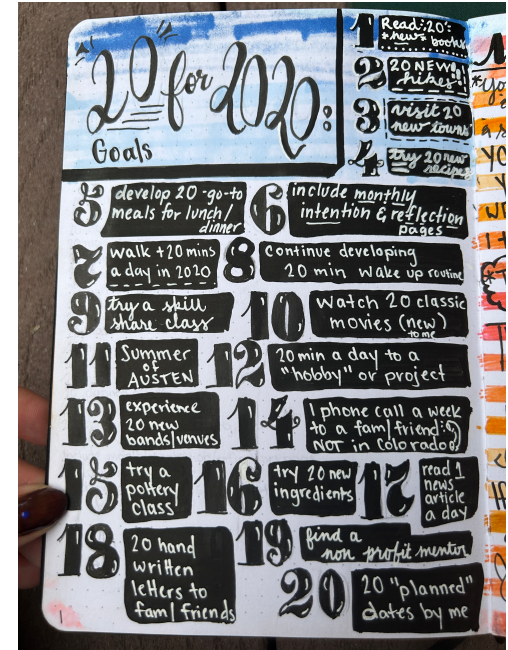 20 for 2020:
Goals
1 Read: 20
*new* books
2 20 NEW!
hikes!
3 visit 20
new towns
4 try 20 new
recipes
5 develop 20 go-to
meals for lunch/
dinner
6 include monthly
intention & reflection
pages
7 walk +20 mins
a day in 2020
8 continue developing
20 min wake up routine
9 try a skill
share class
10 watch 20 classic
movies (new)
to me
11 Summer
of
AUSTEN
12 20 min a day to a
"hobby" or project
13 experience
20 new
bands/venues
14 1 phone call a week
to a fam/friend:)
NOT in Colorado
15 try a
pottery
class
16 try 20 new
ingredients
17 read 1
news
article
a day
18 20 hand
written
letters to
fam/friends
19 find a
non profit mentor
20 20 "planned"
dates by me
1